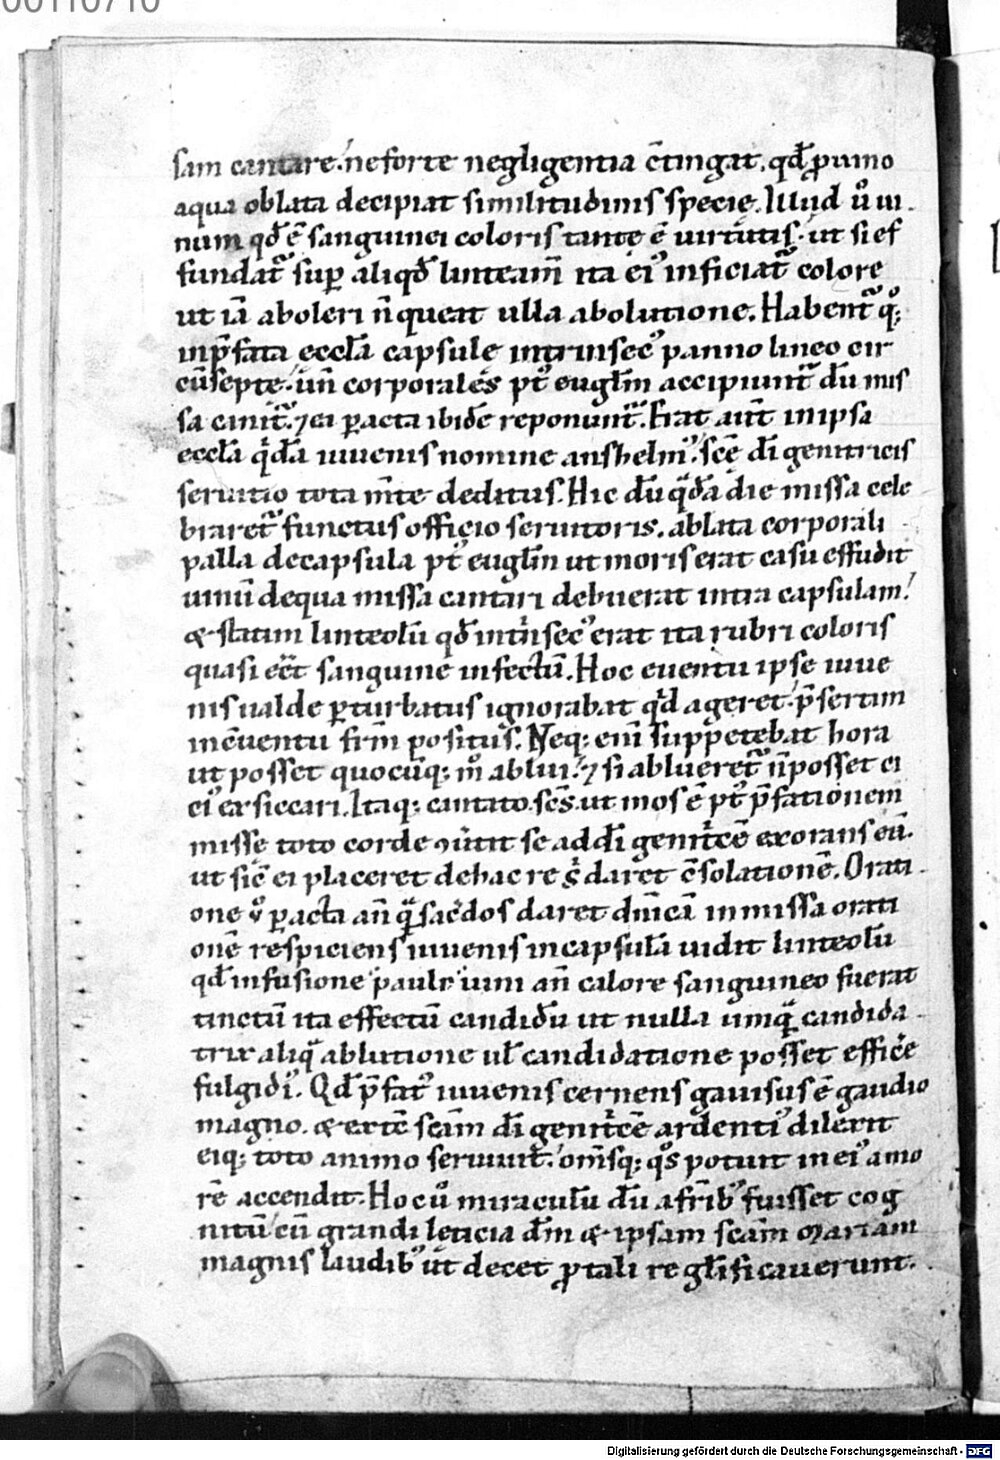 00110710
sam cantare. ne forte negligentia c̄tingat. qđ p̱ uino
aqua oblata decipiat similitudinis specie. Illud ů ui-
num qđ ē sanguinei coloris tantę ē uirtutis. ut si ef
fundat᷑ sup̱ aliqđ linteam̄ ita ei᾽ inficiat᷑ colore
ut iā aboleri n̄ queat ulla abolutione. Habent᷑ q͛;
in p̄fata eccl̄a capsule intrinsec᾽ panno lineo cir
cūsepte. un̄ corporales pt᾽ euglm̄ accipiunt᷑ dū mis
sa canit᷑. ⁊ ea p̱acta ibidē reponunt᷑. Erat aut̄ in ipsa
eccl̄a q̇dā iuuenis nomine anshelm᾽. scē dī genitricis
seruitio tota m̄te deditus. Hic dū q̄dā die missa cele
braret᷑ functus officio seruitoris. ablata corporali
palla de capsula pt᾽ euglm̄ ut moris erat casu effudit
uinū de qua missa cantari debuerat intra capsulam.
& statim linteolū qđ intͥnsec᾽ erat ita rubri coloris
quasi eēt sanguine infectū. Hoc euentu ipse iuue
nis ualde p̱turbatus ignorabat qͥd ageret. p̄sertim
in c̄uentu frm̄ positus. Neq; enī suppetebat hora
ut posset quocūq; m̊ ablui. ⁊ si ablueret᷑ n̄ posset ei
ei᾽ exsiccari. Itaq; cantato .scs̄. ut mos ē pt᾽ p̄fationem
missę toto corde ꝯūtit se ad dī genitͥcē exorans eū.
ut sic̄ ei placeret de hac re sͥ daret c̄solationē. Orati-
one v̊ p̱acta an̄ q̄ sac̄dos daret dn̄icā in missa orati
onē respiciens iuuenis in capsulā uidit linteolū
qđ infusione pauli uini an̄ calore sanguineo fuerat
tinctū ita effectū candidū ut nulla umq̄ candida-
trix aliq̄ ablutione ul̄ candidatione posset effic̄e
fulgidi᾽. Qđ p̄fat᾽ iuuenis cernens gauisus ē gaudio
magno. & extc̄ scām dī genitͥcē ardenti᾽ dilexit
eiq; toto animo seruiuit. om̄sq; q͛s potuit in ei᾽ amo
rē accendit. Hoc ů miraculū dū a frīb᾽ fuisset cog
nitū cū grandi leticia dm̄ & ipsam scām mariam
magnis laudib᾽ ut decet p̱ tali re glīficauerunt.
Digitalisierung gefördert durch die Deutsche Forschungsgemeinschaft - DFG